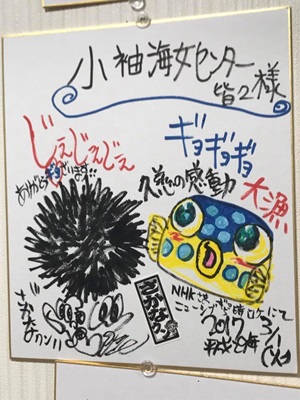 小袖海女センター
皆々様
じぇじぇじぇ
ありがとうございます!!
ギョギョギョ
久慈の感動
大漁
さかなクン
さかなクン!!
NHKさん
ニュースシブ5時ロケにて
2017 3/1
平成29年 (水)